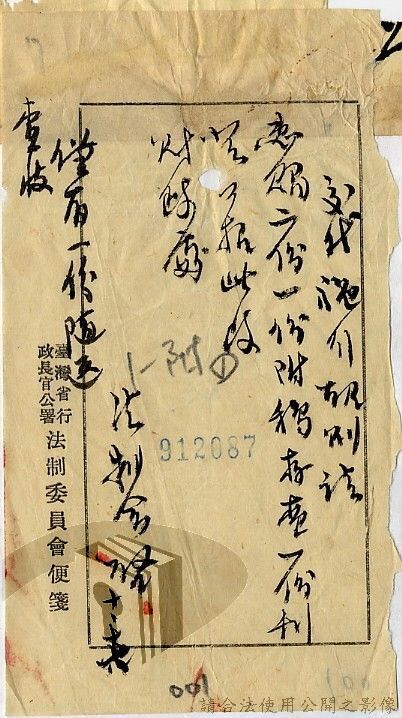 交代施行規則請
惠賜二份一份附稿存查一份刊
登公報此致
財政處
法制會啟
僅有一份隨送
查收
1-附①
912087
臺灣省行
政長官公署
法制委員會便箋
001
100
請合法使用公開之影像